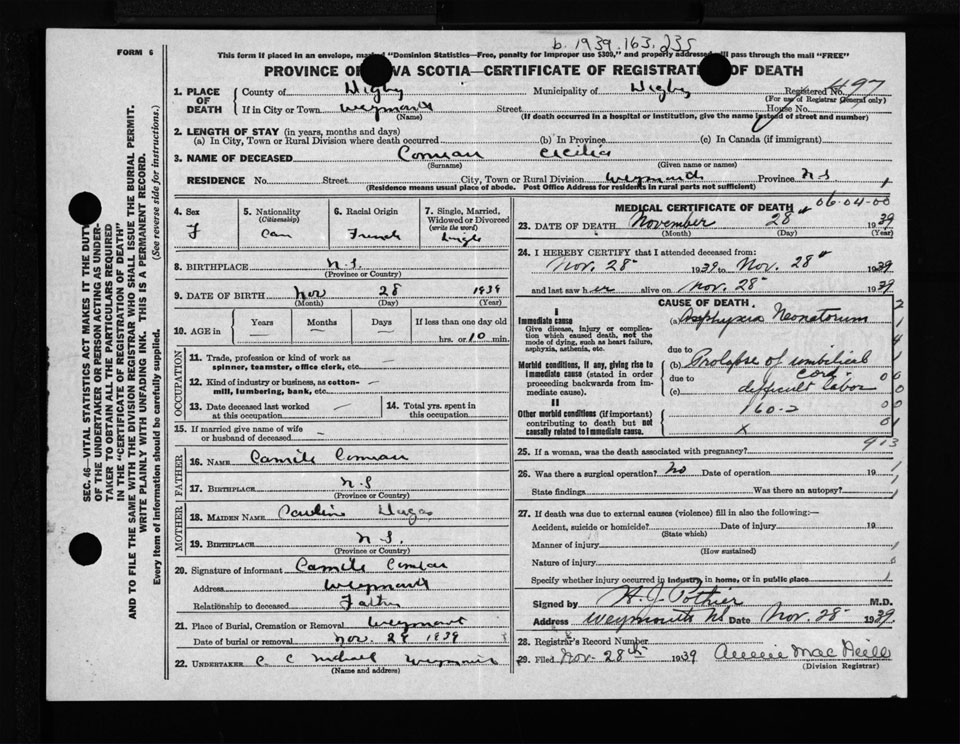 b. 1939.163.235
FORM 6
This form if placed in an envelope, marked "Dominion Statistics—Free, penalty for improper use $300," and properly addressed will pass through the mail "FREE"
PROVINCE OF NOVA SCOTIA—CERTIFICATE OF REGISTRATION OF DEATH
SEC. 46—VITAL STATISTICS ACT MAKES IT THE DUTY
OF THE UNDERTAKER OR PERSON ACTING AS UNDER-
TAKER TO OBTAIN ALL THE PARTICULARS REQUIRED
IN THE "CERTIFICATE OF REGISTRATION OF DEATH"
AND TO FILE THE SAME WITH THE DIVISION REGISTRAR WHO SHALL ISSUE THE BURIAL PERMIT.
WRITE PLAINLY WITH UNFADING INK. THIS IS A PERMANENT RECORD.
Every item of Information should be carefully supplied. (See reverse side for instructions.)
1. PLACE OF DEATH
County of Digby Municipality of Digby Registered No. 497
(For use of Registrar General only)
If in City or Town Weymouth Street House No.
(Name) (If death occurred in a hospital or institution, give the name instead of street and number)
2. LENGTH OF STAY (in years, months and days)
(a) In City, Town or Rural Division where death occurred (b) In Province (c) In Canada (if immigrant)
3. NAME OF DECEASED Comeau Cecilia
(Surname) (Given name or names)
RESIDENCE No. Street City, Town or Rural Division Weymouth Province N.S.
(Residence means usual place of abode. Post Office Address for residents in rural parts not sufficient)
4. Sex
F
5. Nationality
(Citizenship)
Can
6. Racial Origin
French
7. Single, Married,
Widowed or Divorced
(write the word)
Single
8. BIRTHPLACE N.S.
(Province or Country)
9. DATE OF BIRTH Nov 28 1939
(Month) (Day) (Year)
10. AGE in Years Months Days If less than one day old
hrs. or 10 min.
OCCUPATION
11. Trade, profession or kind of work as
spinner, teamster, office clerk, etc. —
12. Kind of industry or business, as cotton-
mill, lumbering, bank, etc. —
13. Date deceased last worked
at this occupation —
14. Total yrs. spent in
this occupation
15. If married give name of wife
or husband of deceased —
FATHER
16. NAME Camille Comeau
17. BIRTHPLACE N.S
(Province or Country)
MOTHER
18. MAIDEN NAME Pauline Dugas
19. BIRTHPLACE N.S.
(Province or Country)
20. Signature of informant Camille Comeau
Address Weymouth
Relationship to deceased Father
21. Place of Burial, Cremation or Removal Weymouth
Date of burial or removal Nov. 29 1939
22. UNDERTAKER C. C Weymouth
(Name and address)
MEDICAL CERTIFICATE OF DEATH 06-04-00
23. DATE OF DEATH November 28 1939
(Month) (Day) (Year)
24. I HEREBY CERTIFY that I attended deceased from:
Nov. 28 1939 to Nov. 28 1939
and last saw her alive on Nov. 28 1939
CAUSE OF DEATH
I
Immediate cause
Give disease, injury or complica-
tion which caused death, not the
mode of dying, such as heart failure,
asphyxia, asthenia, etc.
(a) Asphyxia Neonatorum
due to
Morbid conditions, if any, giving rise to
immediate cause (stated in order
proceeding backwards from im-
mediate cause).
(b) Prolapse of umbilical
due to cord
(c) difficult labor
II
Other morbid conditions (if important)
contributing to death but not
causally related to immediate cause.
160-2
x
25. If a woman, was the death associated with pregnancy? 913
26. Was there a surgical operation? No Date of operation 19
State findings Was there an autopsy?
27. If death was due to external causes (violence) fill in also the following:—
Accident, suicide or homicide? Date of injury 19
(State which)
Manner of injury
(How sustained)
Nature of injury
Specify whether injury occurred in industry, in home, or in public place
Signed by H. J. Pothier M.D.
Address Weymouth NS Date Nov. 28 1939
28. Registrar's Record Number
29. Filed Nov. 28th 1939 Annie MacNeill
(Division Registrar)